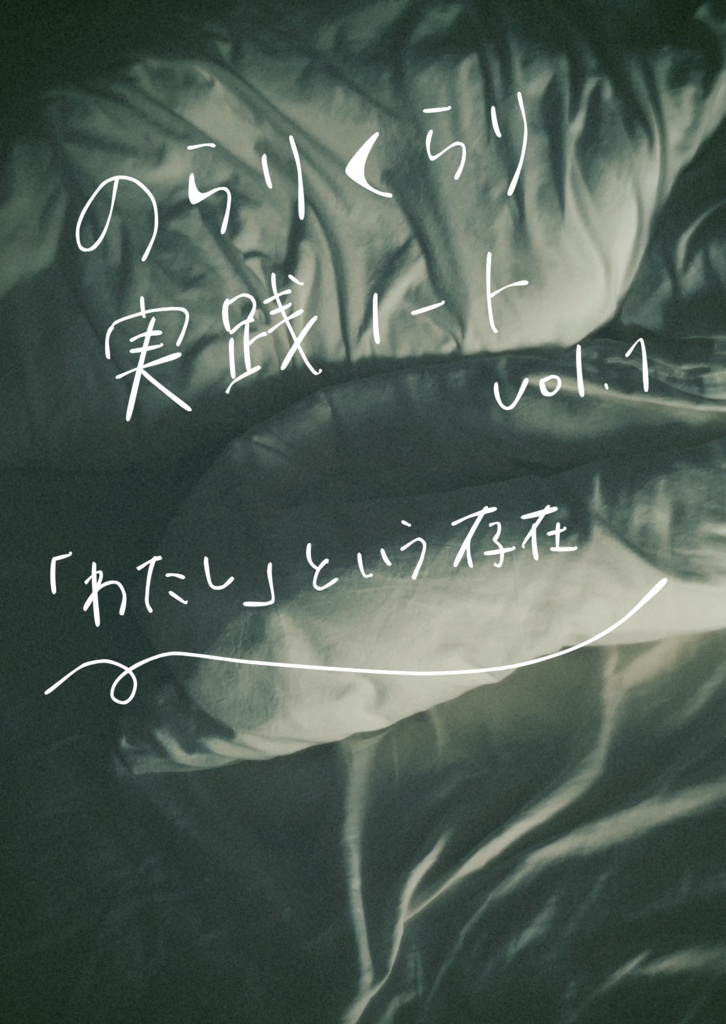 のらりくらり
実践ノート
vol.1
「わたし」という存在